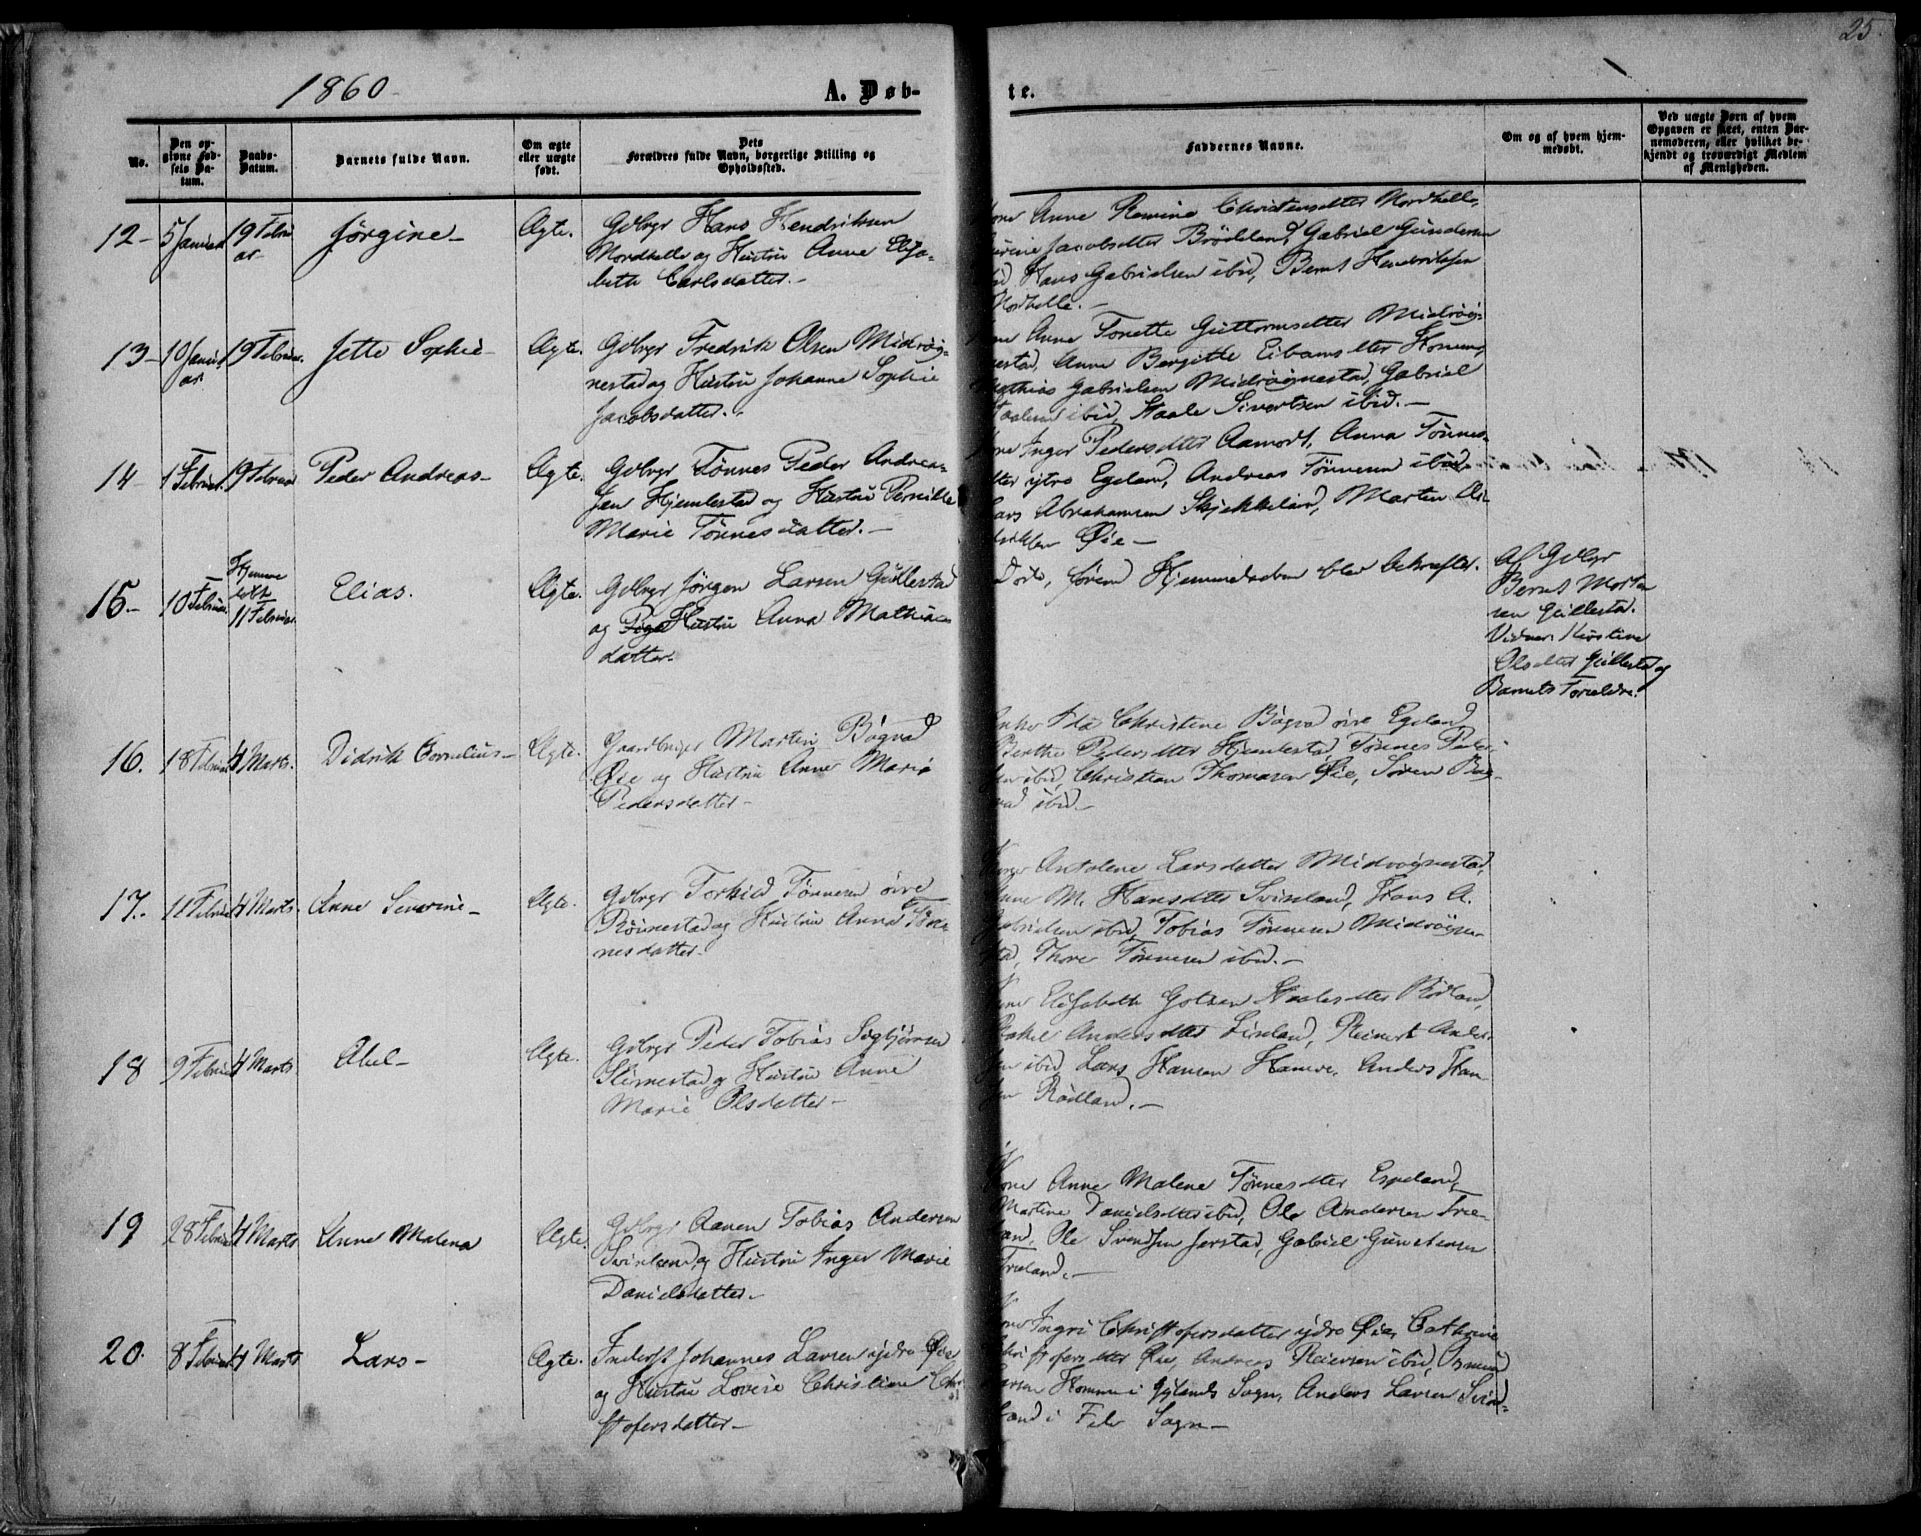 25.
1860
A. Døb-
te.
No.
Den op-
givne Fød-
sels Da-
tum.
Daabs-
Datum.
Barnets fulde Navn.
Om ægte
eller uægte
født.
Dets
Forældres fulde Navn, borgerlige Stilling og
Opholdssted.
Faddernes Navne.
Om og af hvem hjem-
medøbt.
Ved uægte Børn af hvem
Opgaven er skeet, enten Bar-
nemoderen, eller hvilket be-
kjendt og troværdigt Medlem
af Menigheden.
12- 5 Januar 19 Febru
ar. Jørgine- Ægte. Gdbrgr Hans Hendriksen
Nordhelle og Hustru Anne Elisa-
beth Carlsdatter.-
Anne Romine Christensdtter Nordhelle,
Jacobsdtter Brødland, Gabriel Gundersen
Hans Gabrielsen ibid, Bernt Hendriksen
Nordhelle.-
13- 10 Janu
ar. 19 Februar. Jette Sophie- Ægte. Gdbrgr Fredrik Olsen Midrøig-
nestad og Hustru Johanne Sophie
Jacobsdatter.
Anne Tonette Guttormsdtter Midrøig-
nestad, Anne Bergitte Dtter
Mathias Gabrielsen Midrøignestad, Gabriel
ibid, Staale Sivertsen ibid.-
14 1 Februar. 19 Februar Peder Andreas- Ægte. Gdbrgr Tønnes Peder Andrea-
sen Hjemlestad og Hustru Pernille
Marie Tønnesdatter.-
Inger Pedersdtter Aamodt, Anna Tønnes-
dtter ytre Egeland, Andreas Tønnesen ibid
Lars Abrahamsen Skjekkeland, Morten
Øie-
15- 10 Februar. Hjemme
døbt
11 Februar. Elias. Ægte. Gdbrgr Jørgen Larsen Gullestad
og Pige Hustru Anna Mathias
datter.
Døde, førend Hjemmedaaben blev bekræftet.
Af Gdbrgr
Bernt Morten
sen Gullestad.
Vidner: Kirstine
Olsdtter Gullestad og
Barnets Forældre.
16. 18 Februar 4 Marts. Didrik Cornelius- Ægte. Gaardbruger Martin Bøgvad
Øie og Hustru Anne Marie
Pedersdatter-
Enke Ida Christine Bøgvad øvre Egeland,
Berthe Pedersdtter Hjemlestad, Tønnes Peder-
sen ibid, Christian Thomasen Øie, Søren Bøg-
vad ibid.-
17. 11 Februar 4 Marts. Anne Severine- Ægte. Gdbrgr Torkild Tønnesen øvre
Røinestad og Hustru Anna Tøn-
nesdatter.
Antolene Larsdatter Midrøignestad,
Anne M. Hansdtter Svindland, Hans A.
Gabrielsen ibid, Tobias Tønnesen Midrøigne-
stad, Thore Tønnesen ibid.-
18 9 Februar 4 Marts Abel- Ægte. Gdbrgr Peder Tobias Sigbjørnsen
Slimestad og Hustru Anne
Marie Olsdatter-
Elisabeth Staalesdtter Rødland,
Rakel Andersdtter Liveland, Reinert Ander-
sen ibid, Lars Hansen Hamre, Anders Han-
sen Rødland.-
19 28 Februar 4 Marts Anne Malena Ægte. Gdbrgr Aanen Tobias Andersen
Svindland og Hustru Inger Marie
Danielsdatter-
Kone Anne Malene Tønnesdtter Espeland,
Martine Danielsdtter ibid, Ole Andersen Tre-
land, Ole Svendsen Jerstad, Gabriel Gundersen
Treland.-
20. 8 Februar 4 Marts Lars- Ægte. Inderst Johannes Larsen ydre Øie
og Hustru Lovise Christiane Chri-
stofersdatter-
Ingri Christofersdatter ydre Øie, Cathrine
Christofersdtter Øie, Andreas Reiersen ibid, Osmund
Larsen Homme i Gylands Sogn, Anders Larsen Svind-
land i Feda Sogn-